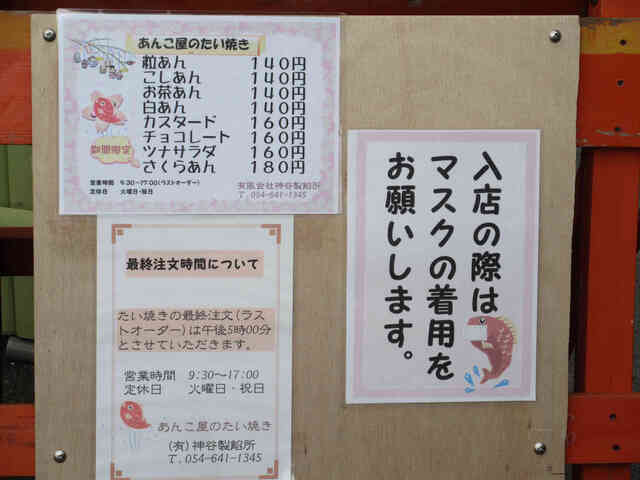 あんこ屋のたい焼き
粒あん 140円
こしあん 140円
お茶あん 140円
白あん 140円
カスタード 160円
チョコレート 160円
ツナサラダ 160円
期間限定
さくらあん 180円
営業時間 9:30~17:00(ラストオーダー)
定休日 火曜日・祝日
有限会社神谷製餡所
T. 054-641-1345
最終注文時間について
たい焼きの最終注文(ラス
トオーダー)は午後5時00分
とさせていただきます。
営業時間 9:30~17:00
定休日 火曜日・祝日
あんこ屋のたい焼き
(有)神谷製餡所
T. 054-641-1345
入店の際は
マスクの着用を
お願いします。